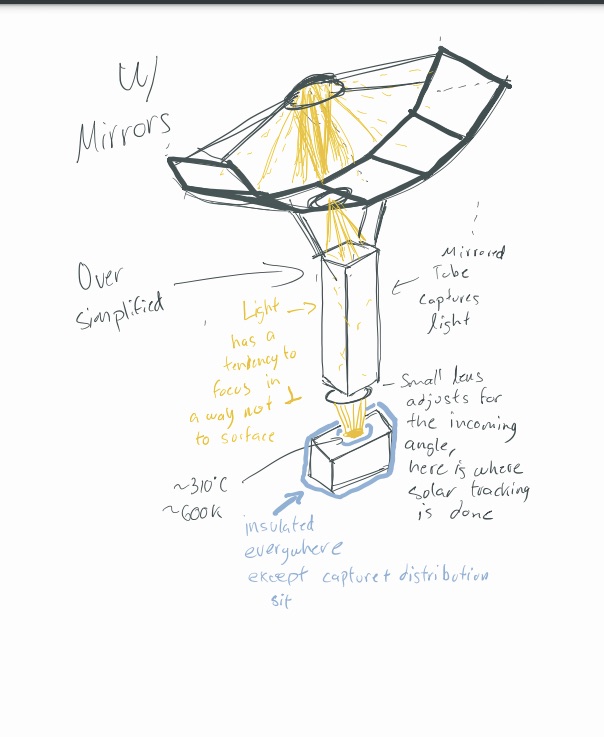 W/
Mirrors
Over
simplified
Mirrored
Tube
captures
light
Light
has a
tendency to
focus in
a way not ⊥
to surface
Small lens
adjusts for
the incoming
angle,
here is where
solar tracking
is done
~310°C
~600K
insulated
everywhere
except capture + distribution
sit